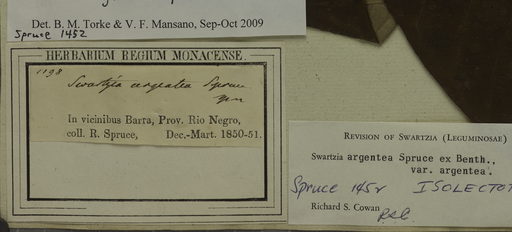 Det. B. M. Torke & V. F. Mansano, Sep-Oct 2009
Spruce 1452
HERBARIUM REGIUM MONACENSE.
1198
Swartzia argentea Spruce
In vicinibus Barra, Prov. Rio Negro,
coll. R. Spruce, Dec.-Mart. 1850-51.
REVISION OF SWARTZIA (LEGUMINOSAE)
Swartzia argentea Spruce ex Benth.,
var. argentea.
Spruce 1452 ISOLECTOT
Richard S. Cowan RSC